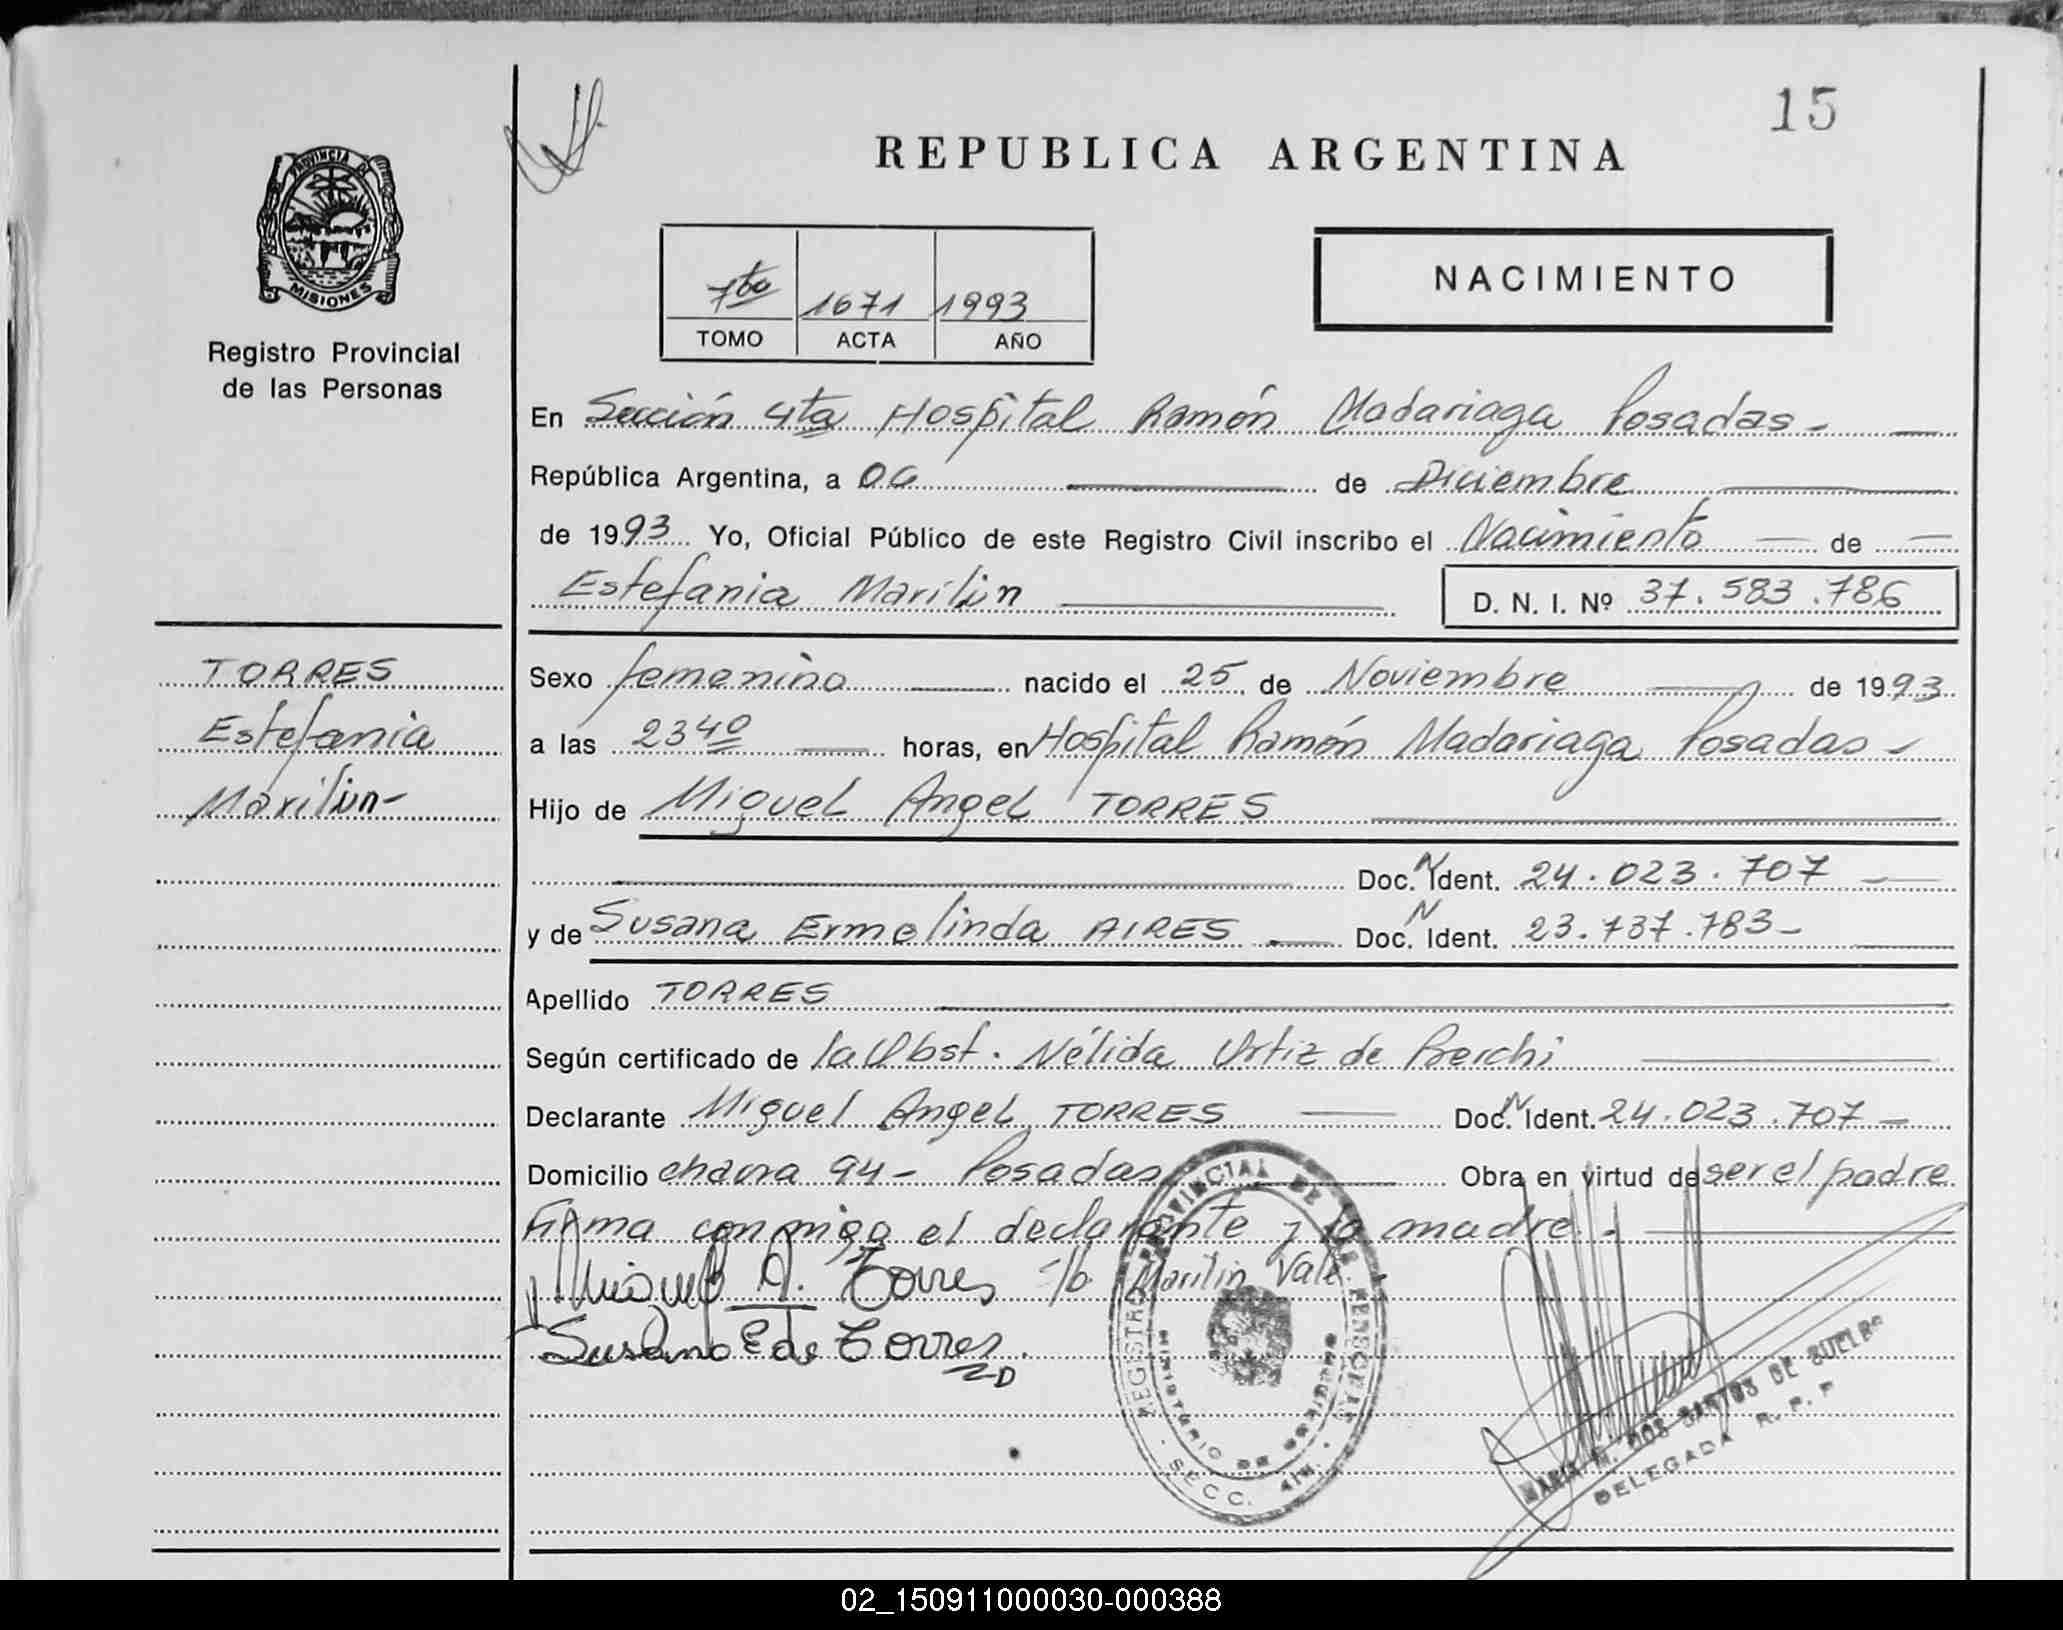 15
REPUBLICA ARGENTINA
PROVINCIA DE
MISIONES
Registro Provincial
de las Personas
7to 1671 1993
TOMO ACTA AÑO
NACIMIENTO
En Sección 4ta Hospital Ramón Madariaga Posadas
República Argentina, a 06 de Diciembre
de 1993 Yo, Oficial Público de este Registro Civil inscribo el Nacimiento de
Estefania Marilin D. N. I. Nº 37.583.786
TORRES
Estefania
Marilin-
Sexo femenino nacido el 25 de Noviembre de 1993
a las 23 40 horas, en Hospital Ramón Madariaga Posadas
Hijo de Miguel Angel TORRES
Doc. N Ident. 24.023.707
y de Susana Ermelinda AIRES Doc. N Ident. 23.737.783
Apellido TORRES
Según certificado de la Obst. Nélida Ortiz de
Declarante Miguel Angel TORRES Doc. N Ident. 24.023.707
Domicilio chacra 94- Posadas Obra en virtud de ser el padre.
Firma conmigo el declarante y la madre.-
Miguel A. Torres S/b Marilin Vale.
Susana E de Torres
REGISTRO PROVINCIAL DE LAS PERSONAS
MINISTERIO DE GOBIERNO
SECC. 4ta.
MARIA M. DOS SANTOS DE
DELEGADA R. P. P.
02_150911000030-000388